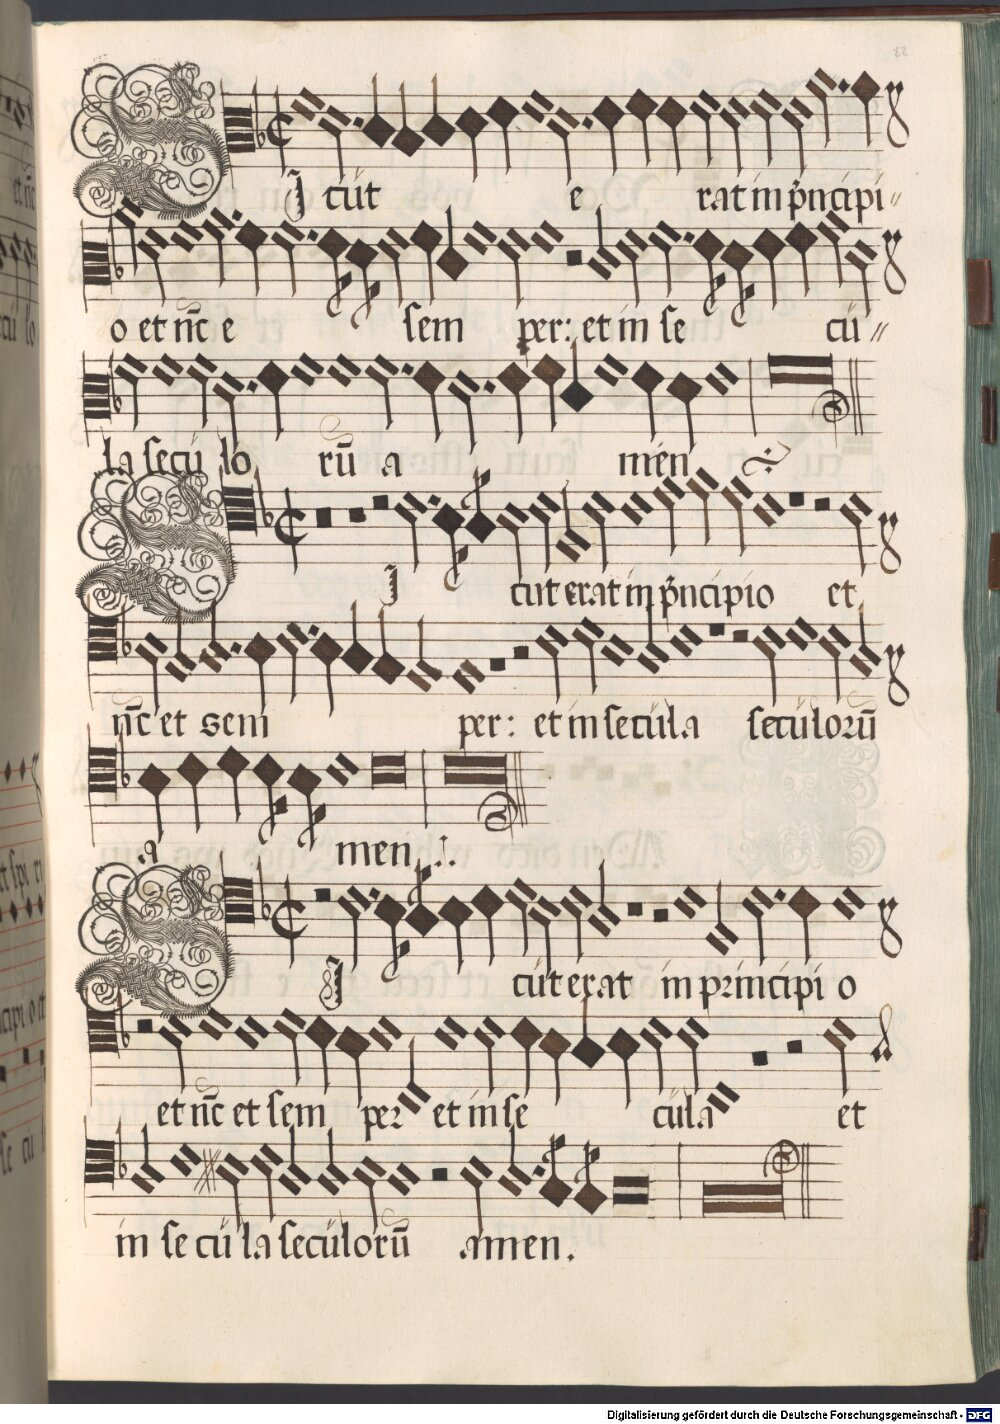 82
SI cut e rat in prncipi
o et nc e sem per: et in se cu
la secu lo ru a men
SI cut erat in prncipio et
nc et sem per: et in secula seculoru
a men
SI cut erat in principi o
et nc et sem per et in se cula et
in se cu la seculoru amen.
Digitalisierung gefördert durch die Deutsche Forschungsgemeinschaft - DFG